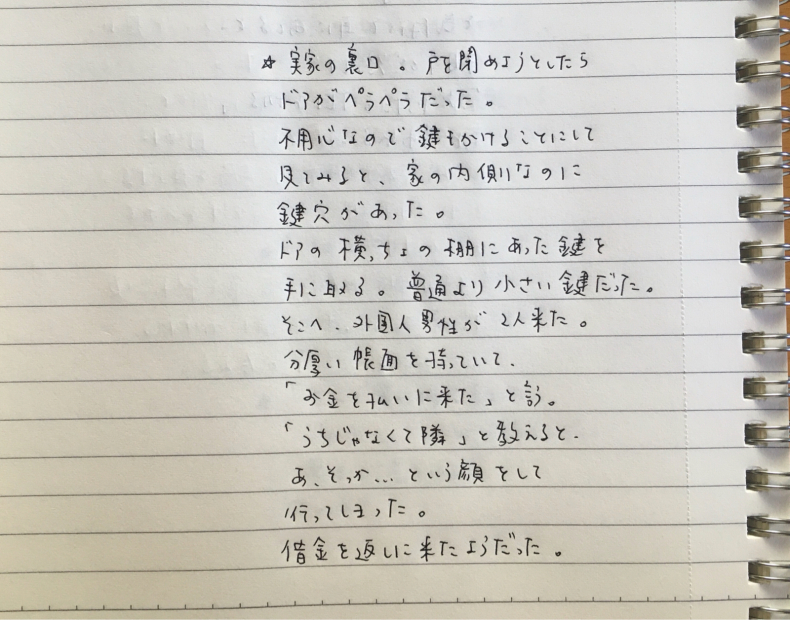 ☆ 実家の裏口。戸を閉めようとしたら
ドアがペラペラだった。
不用心なので鍵をかけることにして
見てみると、家の内側なのに
鍵穴があった。
ドアの横っちょの棚にあった鍵を
手に取る。普通より小さい鍵だった。
そこへ、外国人男性が2人来た。
分厚い帳面を持っていて、
「お金を払いに来た」と言う。
「うちじゃなくて隣」と教えると、
あ、そっか…という顔をして
行ってしまった。
借金を返しに来たようだった。